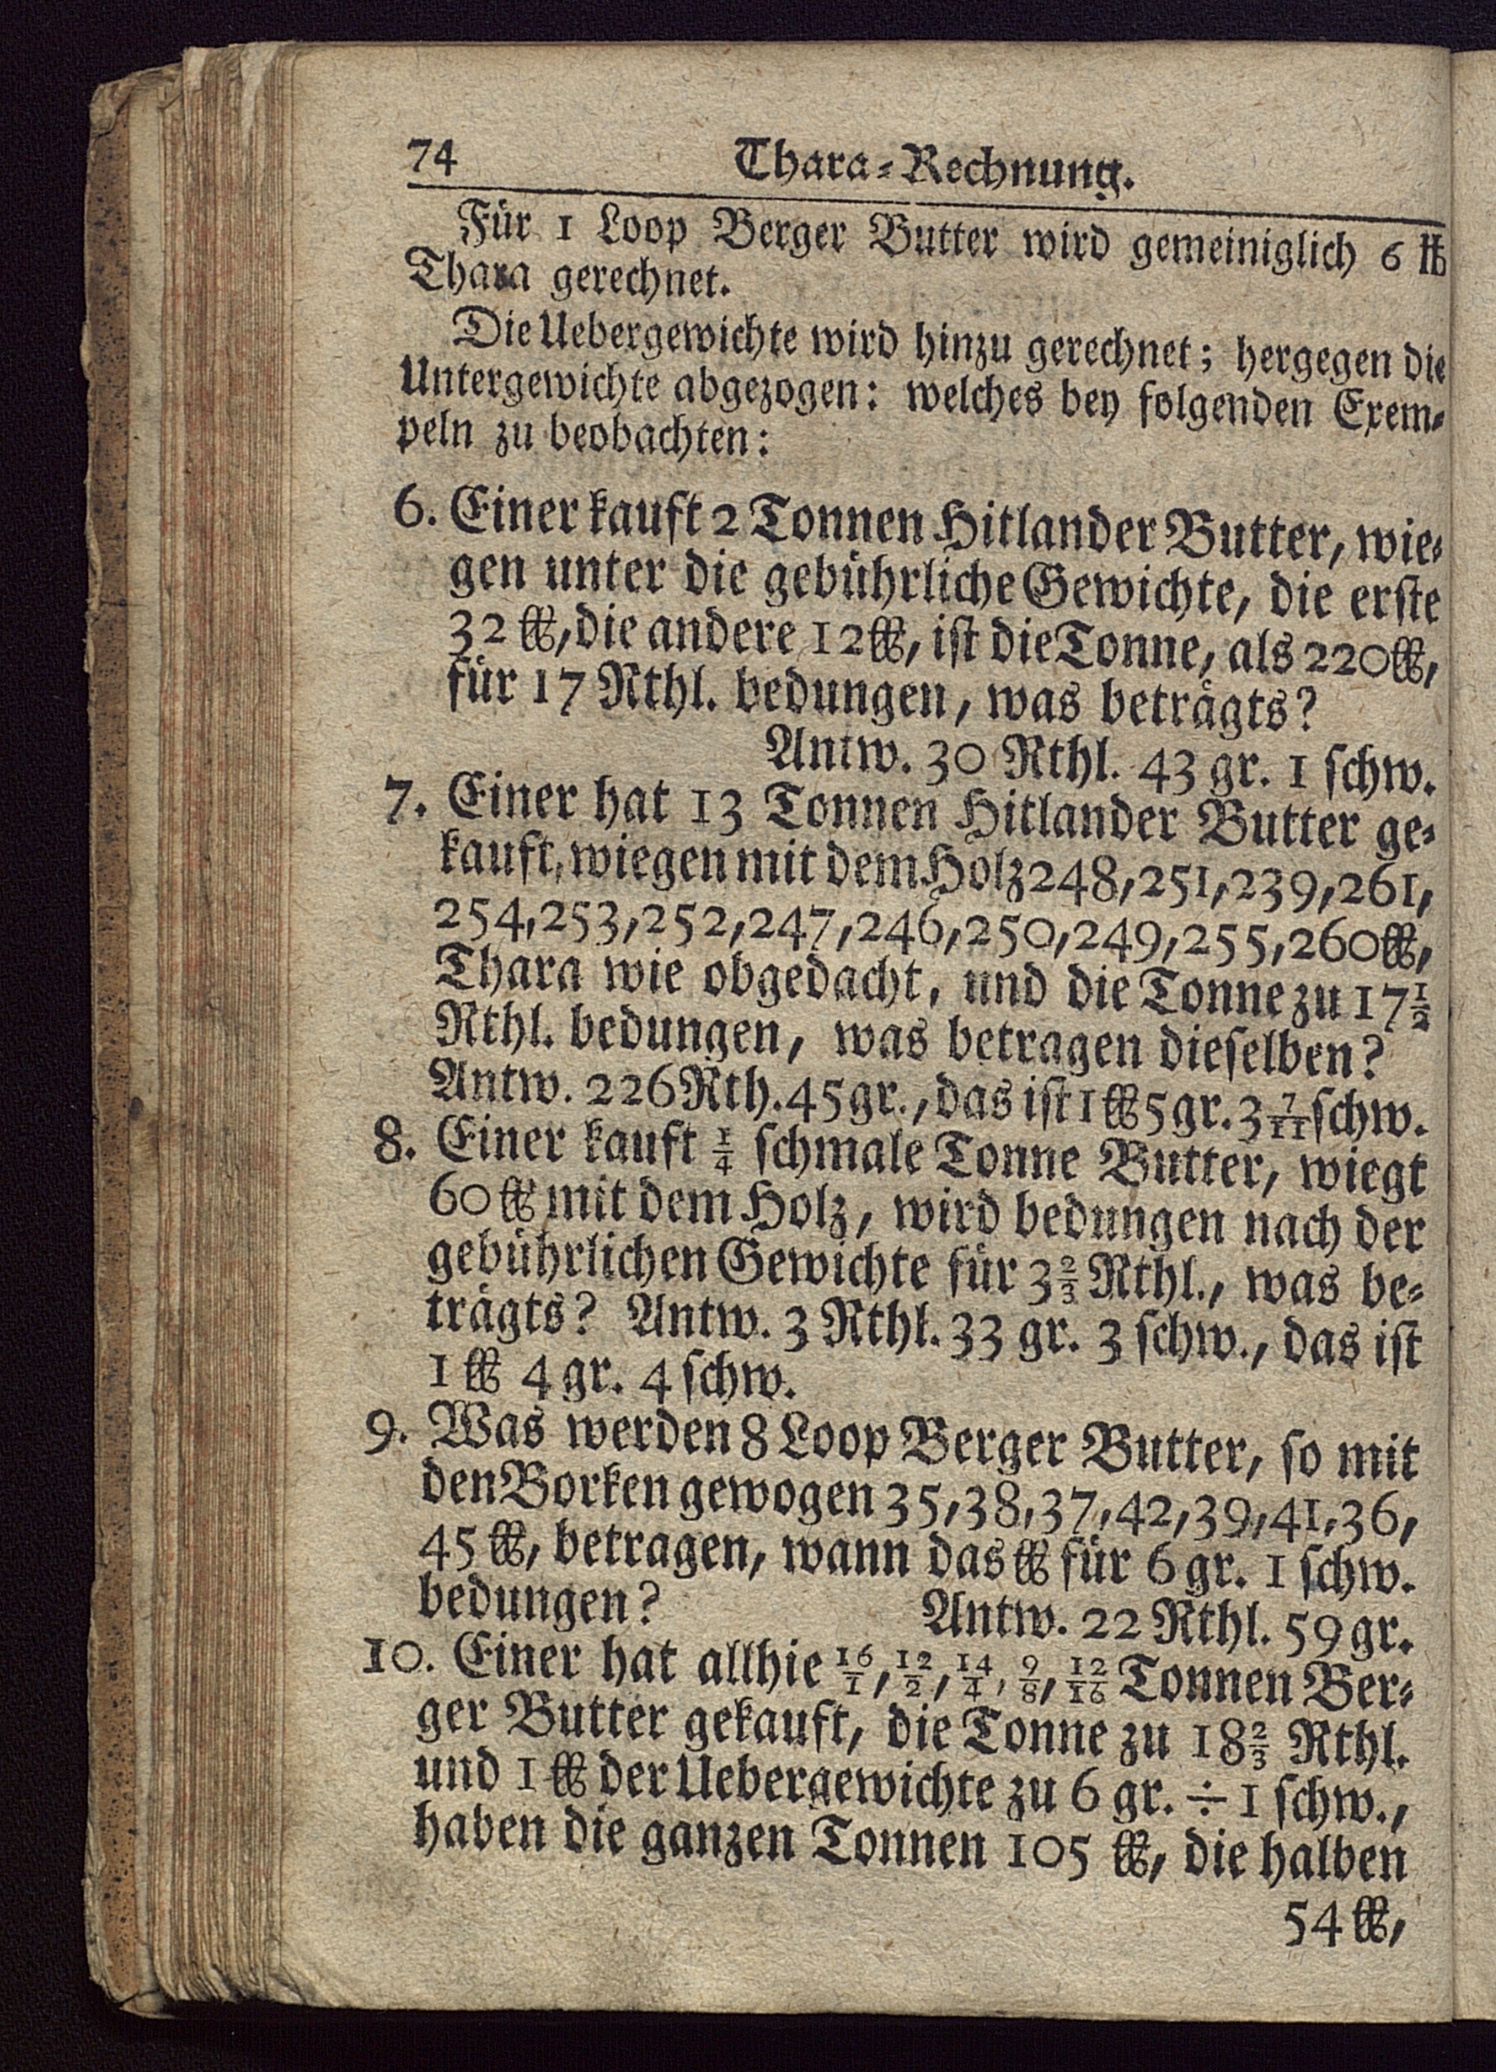 74 Thara-Rechnung.
Für 1 Loop Berger Butter wird gemeiniglich 6 ℔
Thara gerechnet.
Die Uebergewichte wird hinzu gerechnet; hergegen die
Untergewichte abgezogen: welches bey folgenden Exem-
peln zu beobachten:
6. Einer kauft 2 Tonnen Hitlander Butter, wie-
gen unter die gebührliche Gewichte, die erste
32 ℔, die andere 12 ℔, ist die Tonne, als 220 ℔,
für 17 Rthl. bedungen, was beträgts?
Antw. 30 Rthl. 43 gr. 1 schw.
7. Einer hat 13 Tonnen Hitlander Butter ge-
kauft, wiegen mit dem Holz 248, 251, 239, 261,
254, 253, 252, 247, 246, 250, 249, 255, 260 ℔,
Thara wie obgedacht, und die Tonne zu 17 1/2
Rthl. bedungen, was betragen dieselben?
Antw. 226 Rth. 45 gr., das ist 1 ℔ 5 gr. 3 7/11 schw.
8. Einer kauft 1/4 schmale Tonne Butter, wiegt
60 ℔ mit dem Holz, wird bedungen nach der
gebührlichen Gewichte für 3 2/3 Rthl., was be-
trägts? Antw. 3 Rthl. 33 gr. 3 schw., das ist
1 ℔ 4 gr. 4 schw.
9. Was werden 8 Loop Berger Butter, so mit
den Borken gewogen 35, 38, 37, 42, 39, 41, 36,
45 ℔, betragen, wann das ℔ für 6 gr. 1 schw.
bedungen? Antw. 22 Rthl. 59 gr.
10. Einer hat allhie 16/1, 12/2, 14/4, 9/8, 12/16 Tonnen Ber-
ger Butter gekauft, die Tonne zu 18 2/3 Rthl.
und 1 ℔ der Uebergewichte zu 6 gr. ÷ 1 schw.,
haben die ganzen Tonnen 105 ℔, die halben
54 ℔,